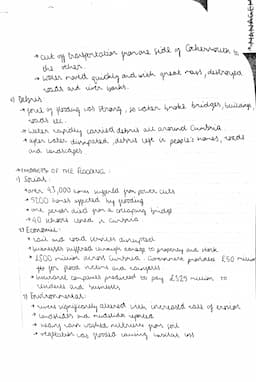 MANAGEM
→ cut off transportation from one side of Cockermouth to
the other.
→ water moved quickly and with great mass, destroyed
roads and river banks.
Debris
→ force of flooding was strong, so water broke bridges, buildings,
roads etc.
→ water rapidly carried debris all around Cumbria
→ after water dissipated, debris left in people's homes, roads
and landscapes
→ IMPACTS OF THE FLOODING:
1) Social:
→ over 43,000 homes suffered from power cuts
→ 5200 homes affected by flooding
→ one person died from a collapsing bridge
→ 40 schools closed in Cumbria
2) Economic:
→ rail and road services disrupted
→ businesses suffered through damage to property and stock
→ £500 million across Cumbria. Government provided £50 million
for flood victims and
→ insurance companies predicted to pay £325 million to
residents and businesses
3) Environmental:
→ rivers significantly altered with increased rate of erosion
→ landslides and mudslides reported
→ heavy rain washed nutrients from soil
→ vegetation was flooded causing habitat loss